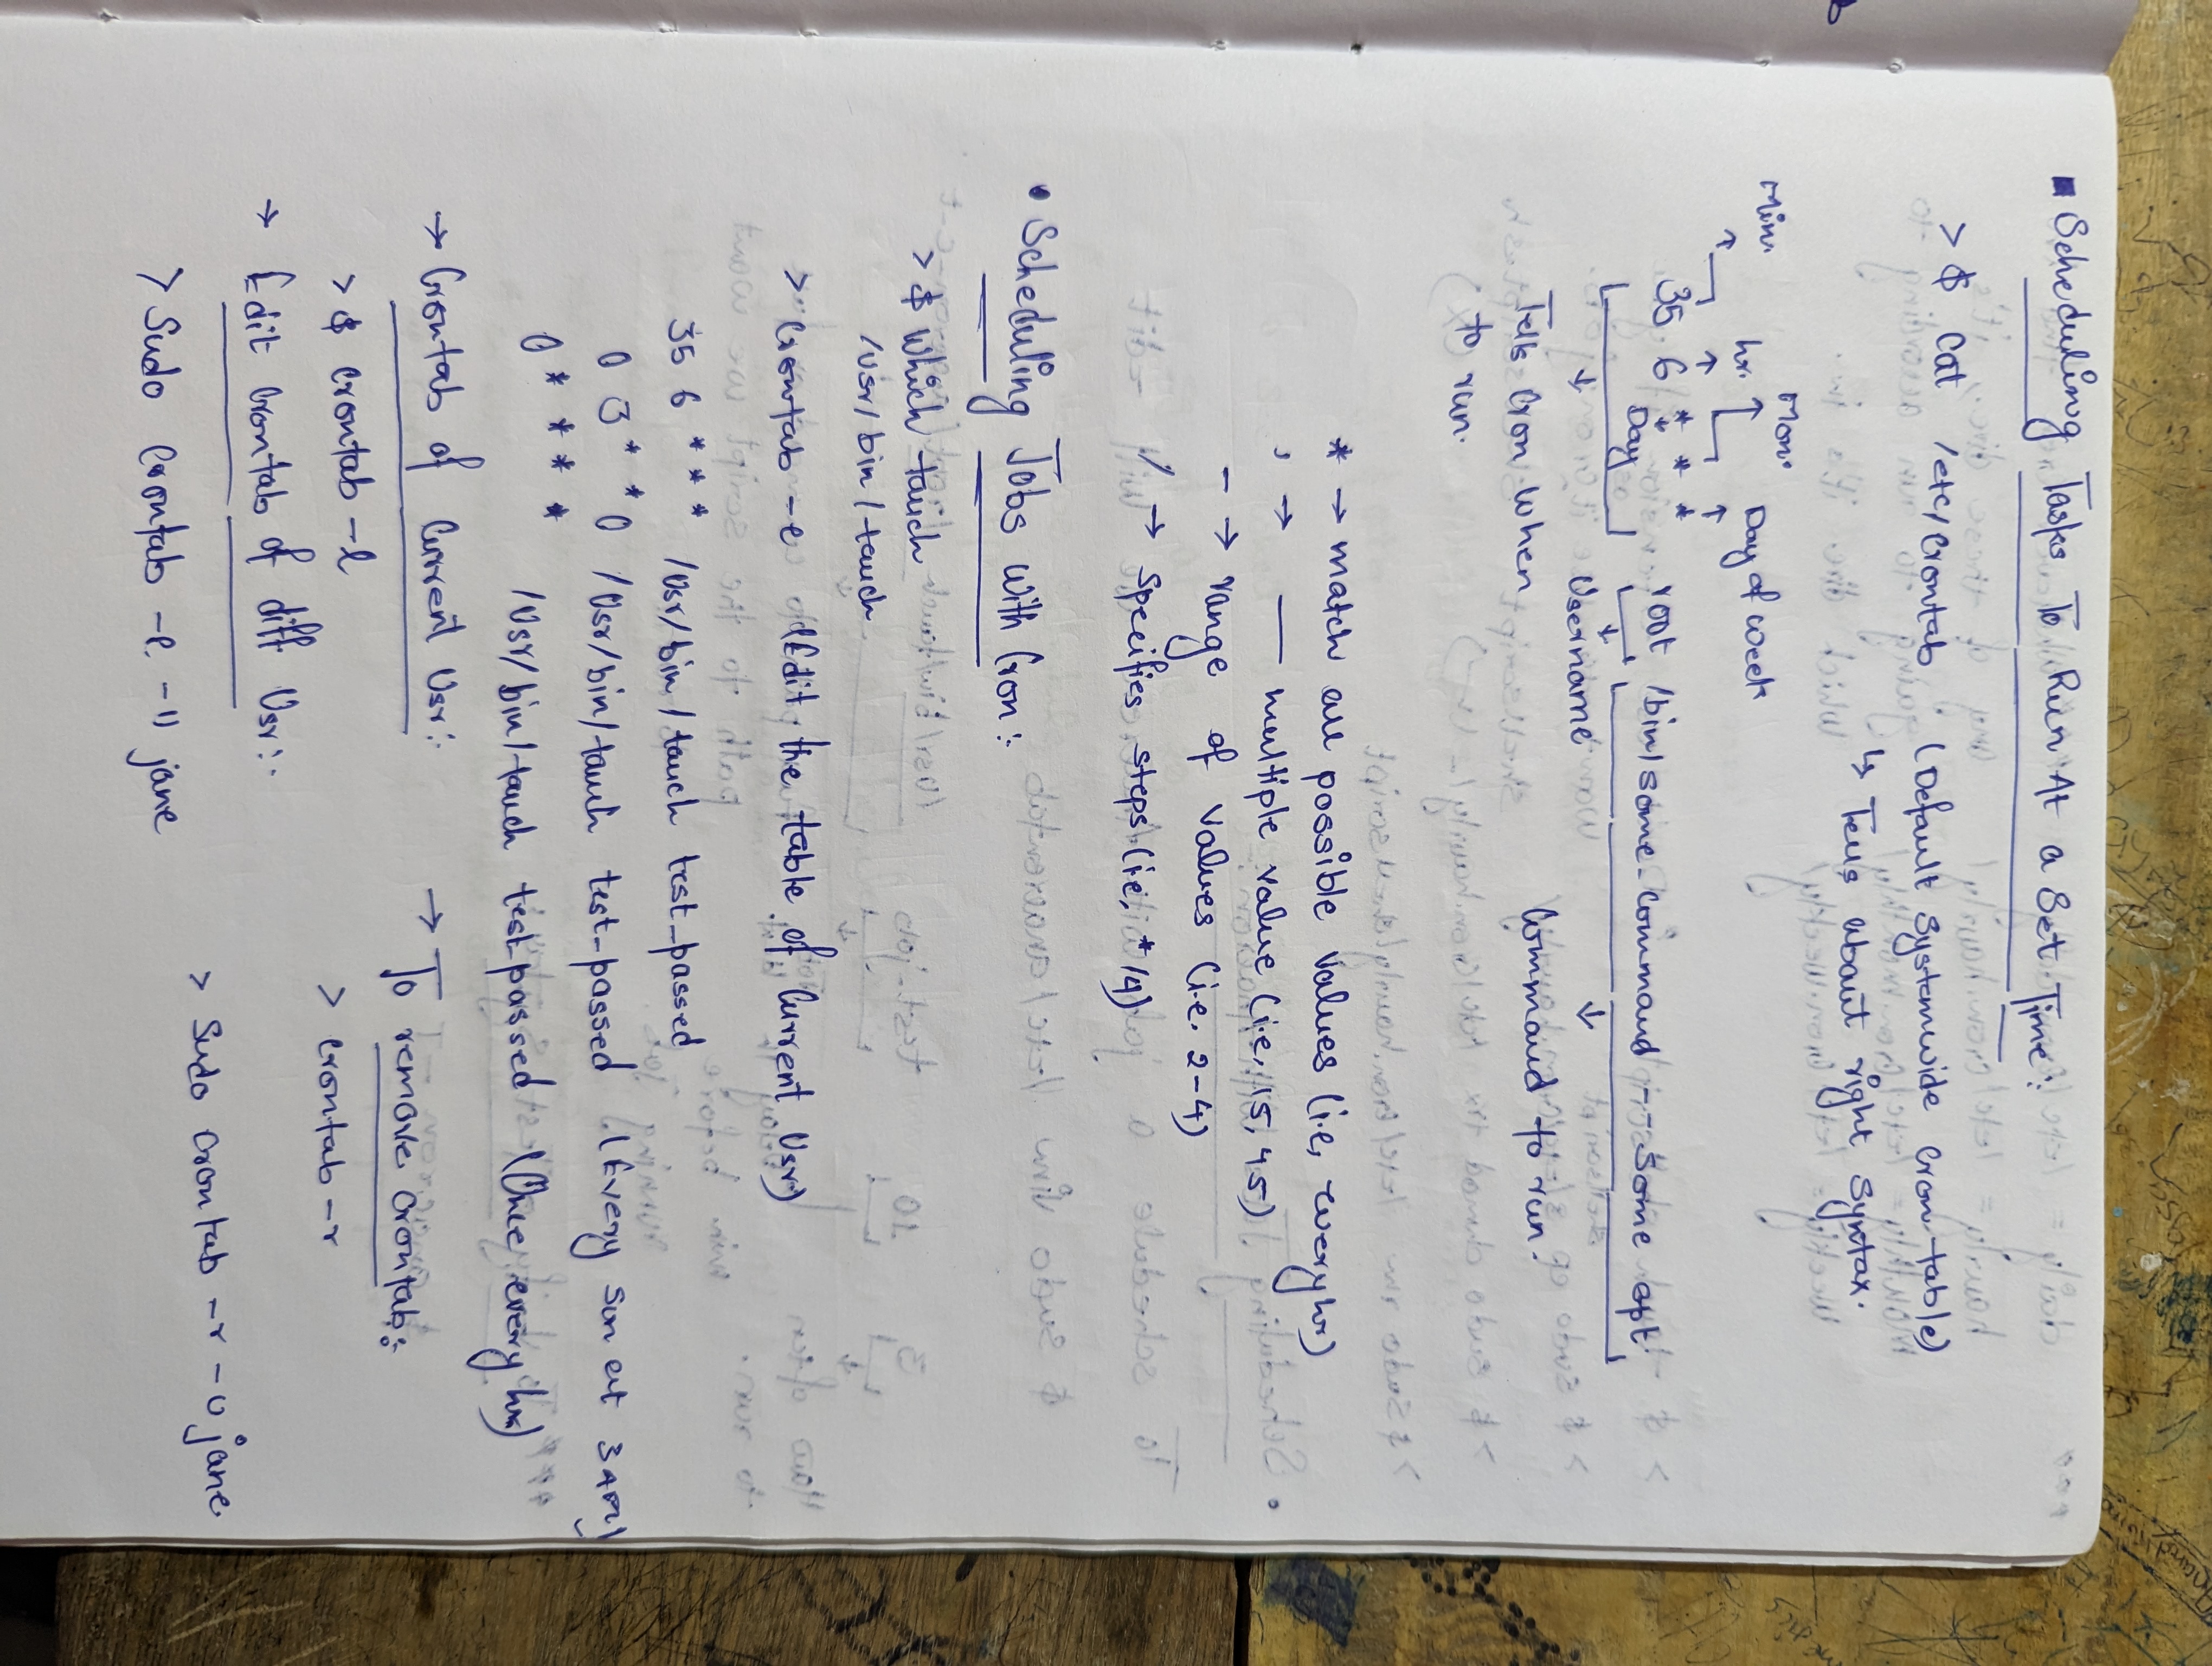 ▪ Scheduling Tasks To Run At a Set Time:
> $ Cat /etc/crontab (Default Systemwide cron-table)
↳ Tells about right Syntax.
Min. hr. Mon. Day of week
35 6 * * * root /bin/some-command --some opt
Day
↓ Username ↓
Tells Cron when to run. Command to run.
* → match all possible values (i.e, every hr)
, → — multiple value (i.e, 15, 45)
- → range of values (i.e. 2-4)
/ → Specifies steps (i.e, */4)
• Scheduling Jobs with Cron:
> $ which touch
/usr/bin/touch
> Crontab -e (Edit the table of Current Usr)
35 6 * * * /usr/bin/touch test_passed
0 3 * * 0 /usr/bin/touch test_passed (Every Sun at 3AM)
0 * * * * /usr/bin/touch test_passed (Once every hr)
→ Crontab of Current Usr:
> $ crontab -l
→ To remove crontab:
> crontab -r
→ Edit Crontab of diff Usr:
> Sudo Crontab -e -u jane
> Sudo crontab -r -u jane